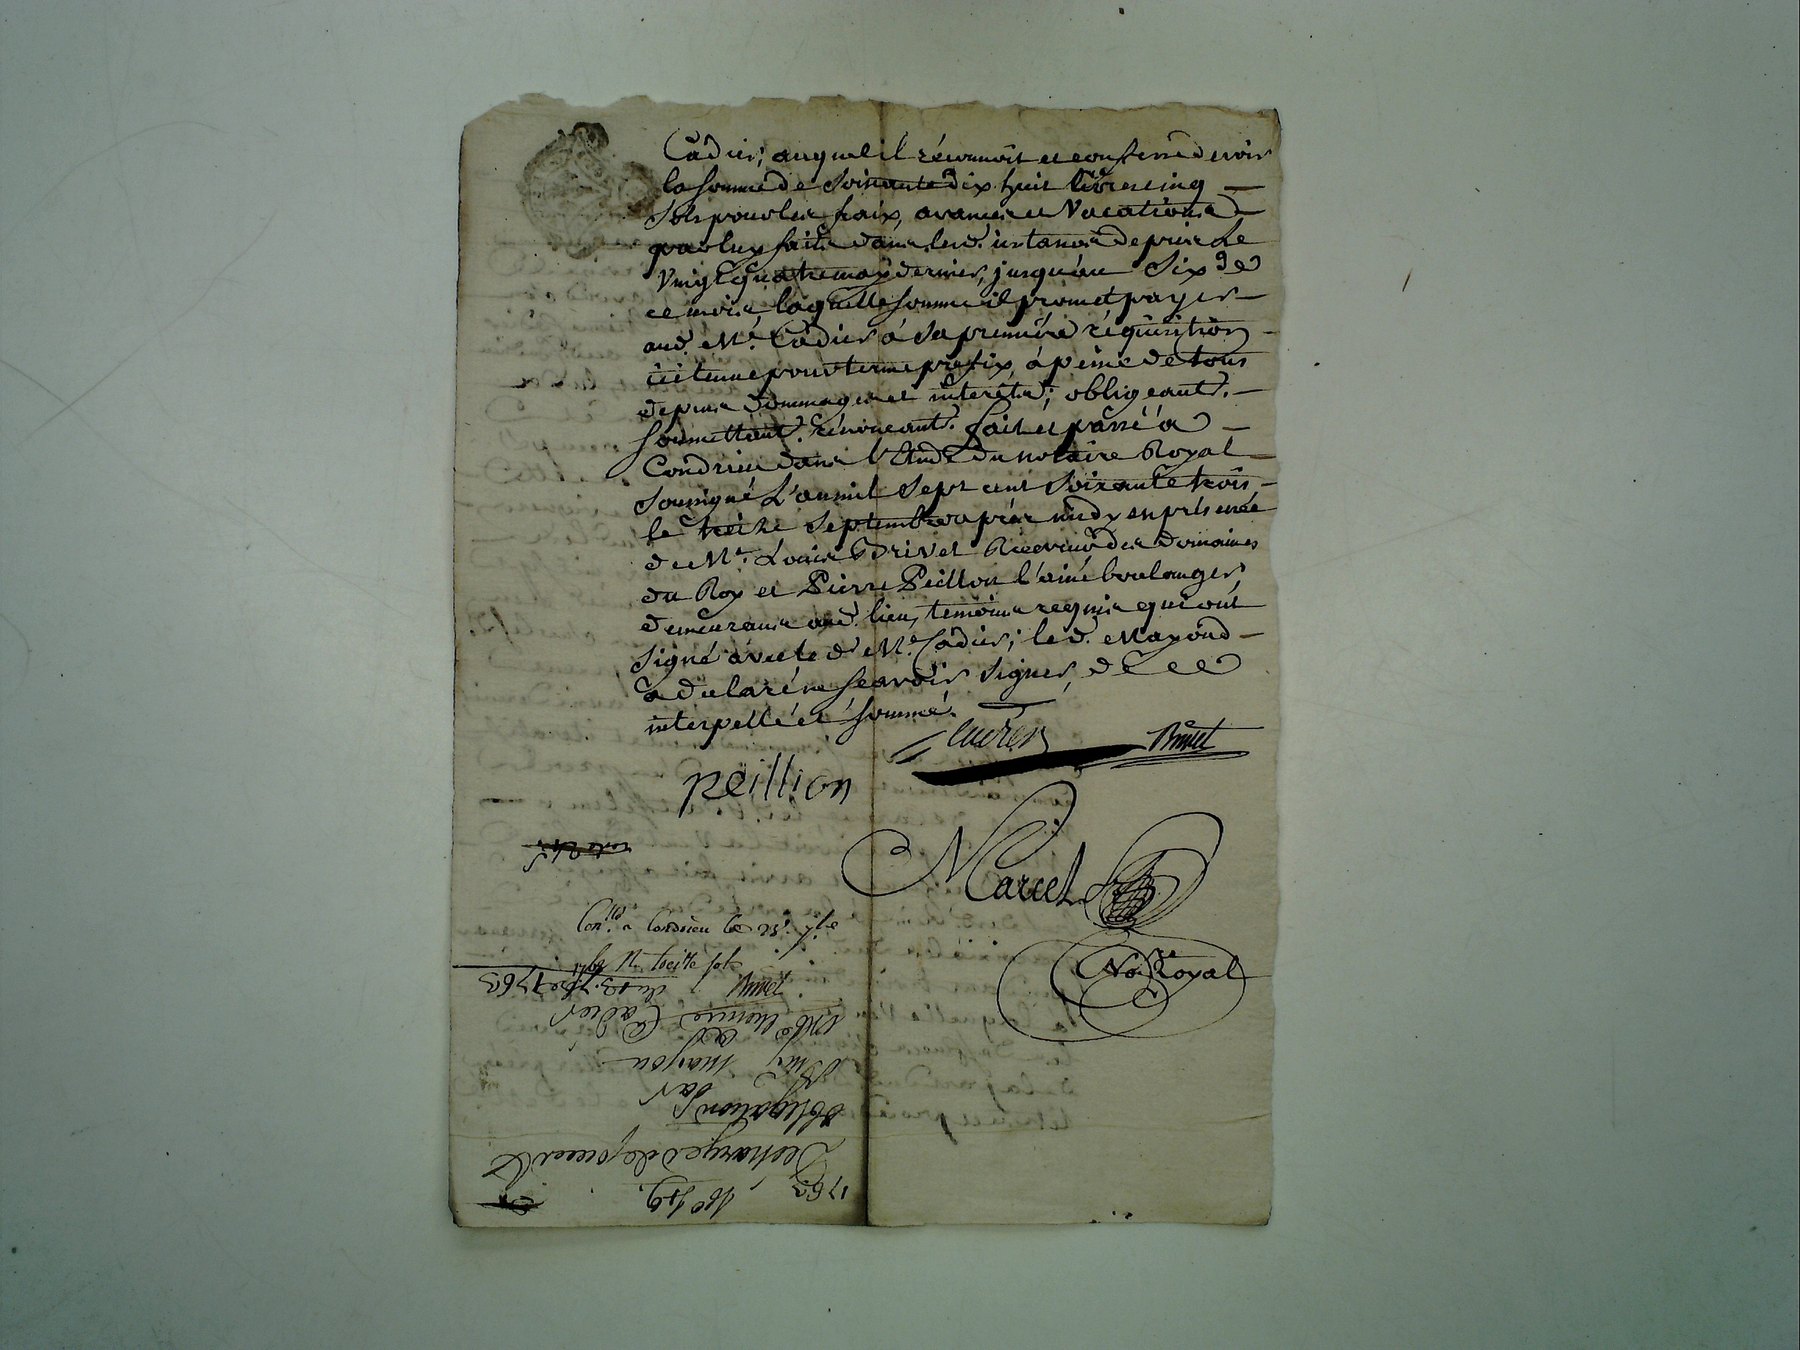 Cadier; auquel il réconnoit et confesse devoir
la somme de soixante dix huit livres cinq
sols pour les fraix, avances et Vacations
par luy faits dans lad. instance depuis Le
vingt quatre may dernier, jusqu'au six de
ce mois laquelle somme il promet payer
aud. Mr. Cadier à sa première réquisition
icitenue pour terme prefix, à peine de tous
depens dommages et interets; obligeant.
soumettant. rénonceant. fait et passé à
Condrieu dans l'Etude du notaire Royal
soussigné L'an mil sept cent soixante trois
le treize septembre après midy en présence
de Mr. Louis Brivet Receveur des Domaines
du Roy et Pierre Peillon l'ainé boulanger
demeurans aud. lieu, temoins requis qui ont
signé avec led. Mr. Cadier; led. Mayoud
a déclaré ne sçavoir signer, de ce
interpellé et sommé.
Cadier Brivet
peillion
Marcel
No.re Royal
Con.lé a Condrieu le 23. 7bre
1763 R. treize sols
Brivet
du 13. 7bre 1763
Cadier
mayou
par
obligation
Decharge de
1763 No